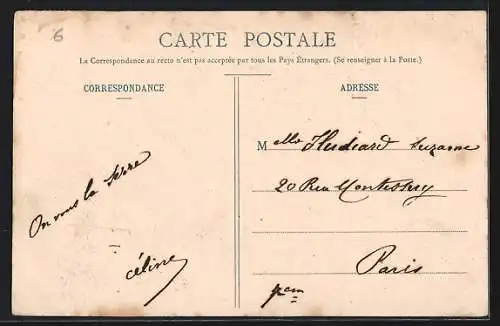 6
CARTE POSTALE
La Correspondance au recto n'est pas acceptée par tous les Pays Étrangers. (Se renseigner à la Poste.)
CORRESPONDANCE
On vous la serre
Céline
ADRESSE
Melle Hudiard Suzanne
20 Rue Monttessuy
Paris